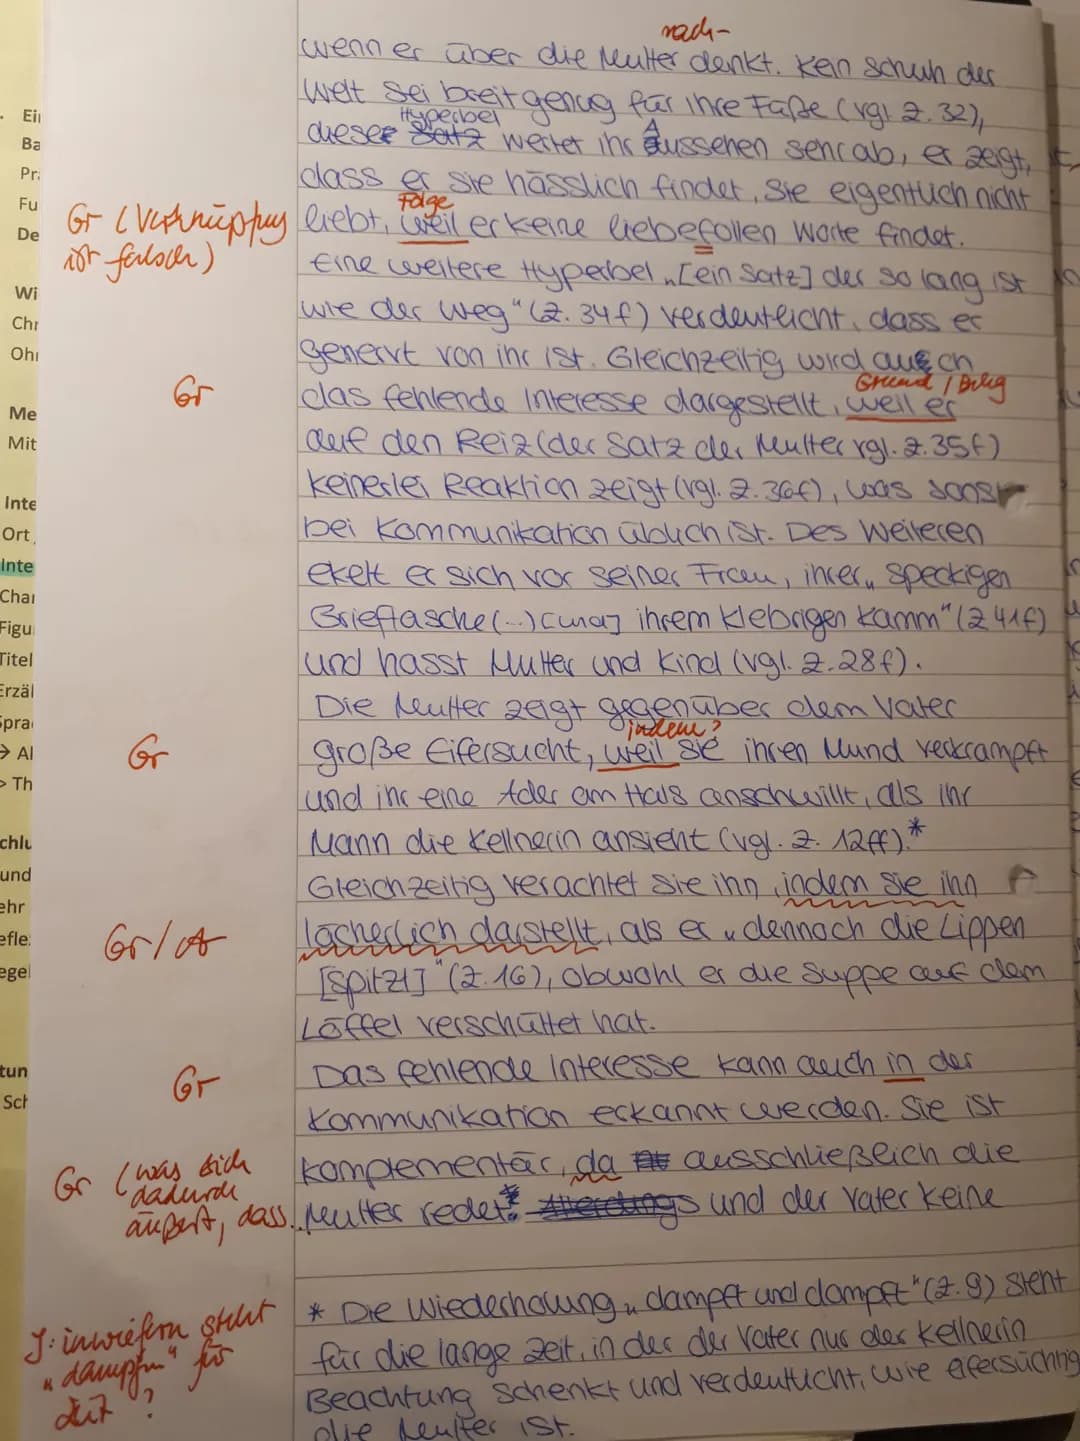 nach-
wenn er über die Mutter denkt. Kein Schuh der
Welt sei breit genug für ihre Füße (vgl. Z. 32),
Hyperbel
dieser Satz wertet ihr Äussehen sehr ab, er zeigt,
dass er sie hässlich findet, sie eigentlich nicht
Folge
Gr (Verknüpfung ist falsch)
liebt, weil er keine liebefollen Worte findet.
Eine weitere Hyperbel „[ein Satz] der so lang ist
wie der Weg" (Z. 34f) verdeutlicht, dass er
genervt von ihr ist. Gleichzeitig wird auch
Grund / Beleg
Gr
das fehlende Interesse dargestellt, weil er
auf den Reiz (der Satz der Mutter vgl. Z. 35f)
keinerlei Reaktion zeigt (vgl. Z. 36f), was sonst
bei Kommunikation üblich ist. Des Weiteren
ekelt er sich vor seiner Frau, ihrer „speckigen
Brieftasche (...) [und] ihrem klebrigen Kamm" (Z 41f)
und hasst Mutter und Kind (vgl. Z. 28f).
Die Mutter zeigt gegenüber dem Vater
indem?
Gr
große Eifersucht, weil sie ihren Mund verkrampft
und ihr eine Ader am Hals anschwillt, als ihr
Mann die Kellnerin ansieht (vgl. Z. 12ff).*
Gleichzeitig verachtet sie ihn, indem sie ihn
Gr/A
lächerlich darstellt, als er „dennoch die Lippen
[spitzt]" (Z. 16), obwohl er die Suppe auf dem
Löffel verschüttet hat.
Das fehlende Interesse kann auch in der
Gr
Kommunikation erkannt werden. Sie ist
komplementär, da ausschließeich die
Gr (was sich dadurch äußert, dass...
Mutter redet* Allerdings und der Vater keine
* Die Wiederholung „dampft und dampft" (Z. 9) steht
J: inwiefern steht „dampfen" für Zeit?
für die lange Zeit, in der der Vater nur der Kellnerin
Beachtung schenkt und verdeutlicht, wie eifersüchtig
die Mutter ist.
Ei
Ba
Pr
Fu
De
Wi
Chr
Ohr
Me
Mit
Inte
Ort
Inte
Char
Figu
Titel
Erzäl
Spra
→ Al
> Th
chlu
und
ehr
efle
egel
tun
Sch